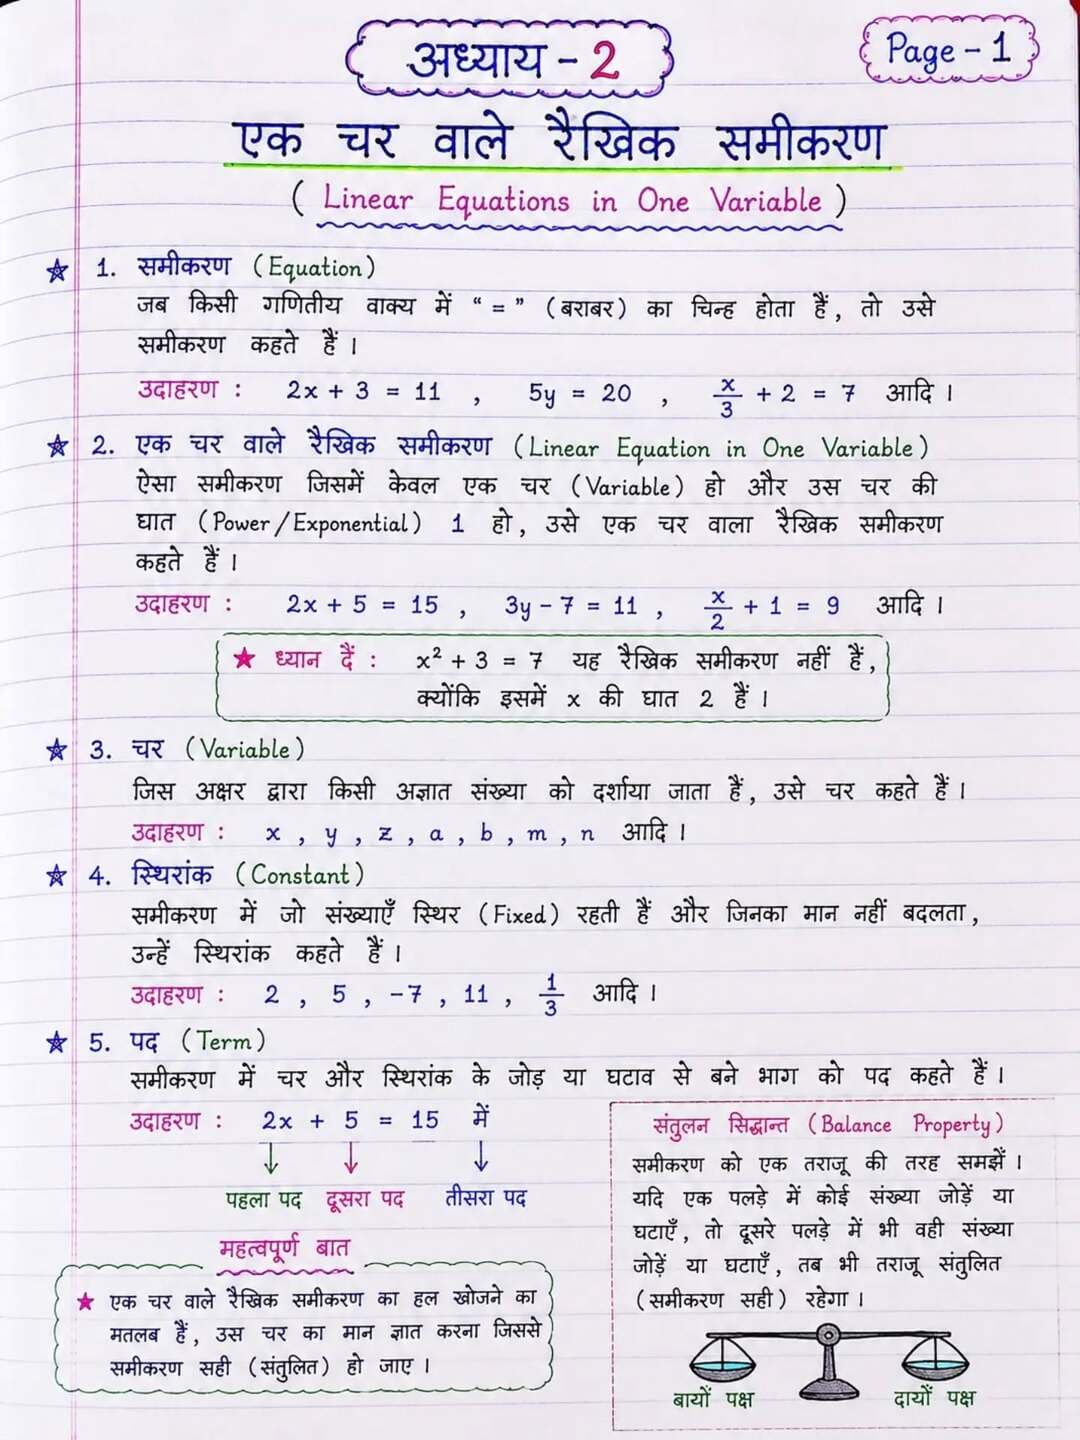 अध्याय - 2
Page - 1
एक चर वाले रैखिक समीकरण
( Linear Equations in One Variable )
☆ 1. समीकरण (Equation)
जब किसी गणितीय वाक्य में “ = ” (बराबर) का चिन्ह होता हैं, तो उसे
समीकरण कहते हैं ।
उदाहरण : 2x + 3 = 11 , 5y = 20 , x/3 + 2 = 7 आदि ।
☆ 2. एक चर वाले रैखिक समीकरण (Linear Equation in One Variable)
ऐसा समीकरण जिसमें केवल एक चर (Variable) हो और उस चर की
घात (Power/Exponential) 1 हो, उसे एक चर वाला रैखिक समीकरण
कहते हैं ।
उदाहरण : 2x + 5 = 15 , 3y - 7 = 11 , x/2 + 1 = 9 आदि ।
★ ध्यान दें : x² + 3 = 7 यह रैखिक समीकरण नहीं हैं,
क्योंकि इसमें x की घात 2 हैं ।
☆ 3. चर (Variable)
जिस अक्षर द्वारा किसी अज्ञात संख्या को दर्शाया जाता हैं, उसे चर कहते हैं ।
उदाहरण : x , y , z , a , b , m , n आदि ।
☆ 4. स्थिरांक (Constant)
समीकरण में जो संख्याएँ स्थिर (Fixed) रहती हैं और जिनका मान नहीं बदलता,
उन्हें स्थिरांक कहते हैं ।
उदाहरण : 2 , 5 , -7 , 11 , 1/3 आदि ।
☆ 5. पद (Term)
समीकरण में चर और स्थिरांक के जोड़ या घटाव से बने भाग को पद कहते हैं ।
उदाहरण : 2x + 5 = 15 में
↓ ↓ ↓
पहला पद दूसरा पद तीसरा पद
महत्वपूर्ण बात
★ एक चर वाले रैखिक समीकरण का हल खोजने का
मतलब हैं, उस चर का मान ज्ञात करना जिससे
समीकरण सही (संतुलित) हो जाए ।
संतुलन सिद्धान्त (Balance Property)
समीकरण को एक तराजू की तरह समझें ।
यदि एक पलड़े में कोई संख्या जोड़ें या
घटाएँ, तो दूसरे पलड़े में भी वही संख्या
जोड़ें या घटाएँ, तब भी तराजू संतुलित
(समीकरण सही) रहेगा ।
बायों पक्ष दायों पक्ष